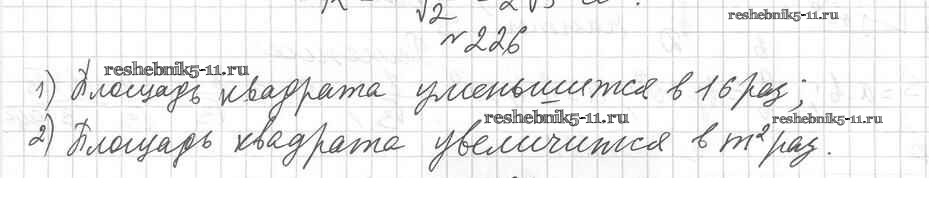 √2 2√3
reshebnik5-11.ru
№226
reshebnik5-11.ru
1) Площадь квадрата уменьшится в 16 раз;
reshebnik5-11.ru
reshebnik5-11.ru
2) Площадь квадрата увеличится в m² раз.